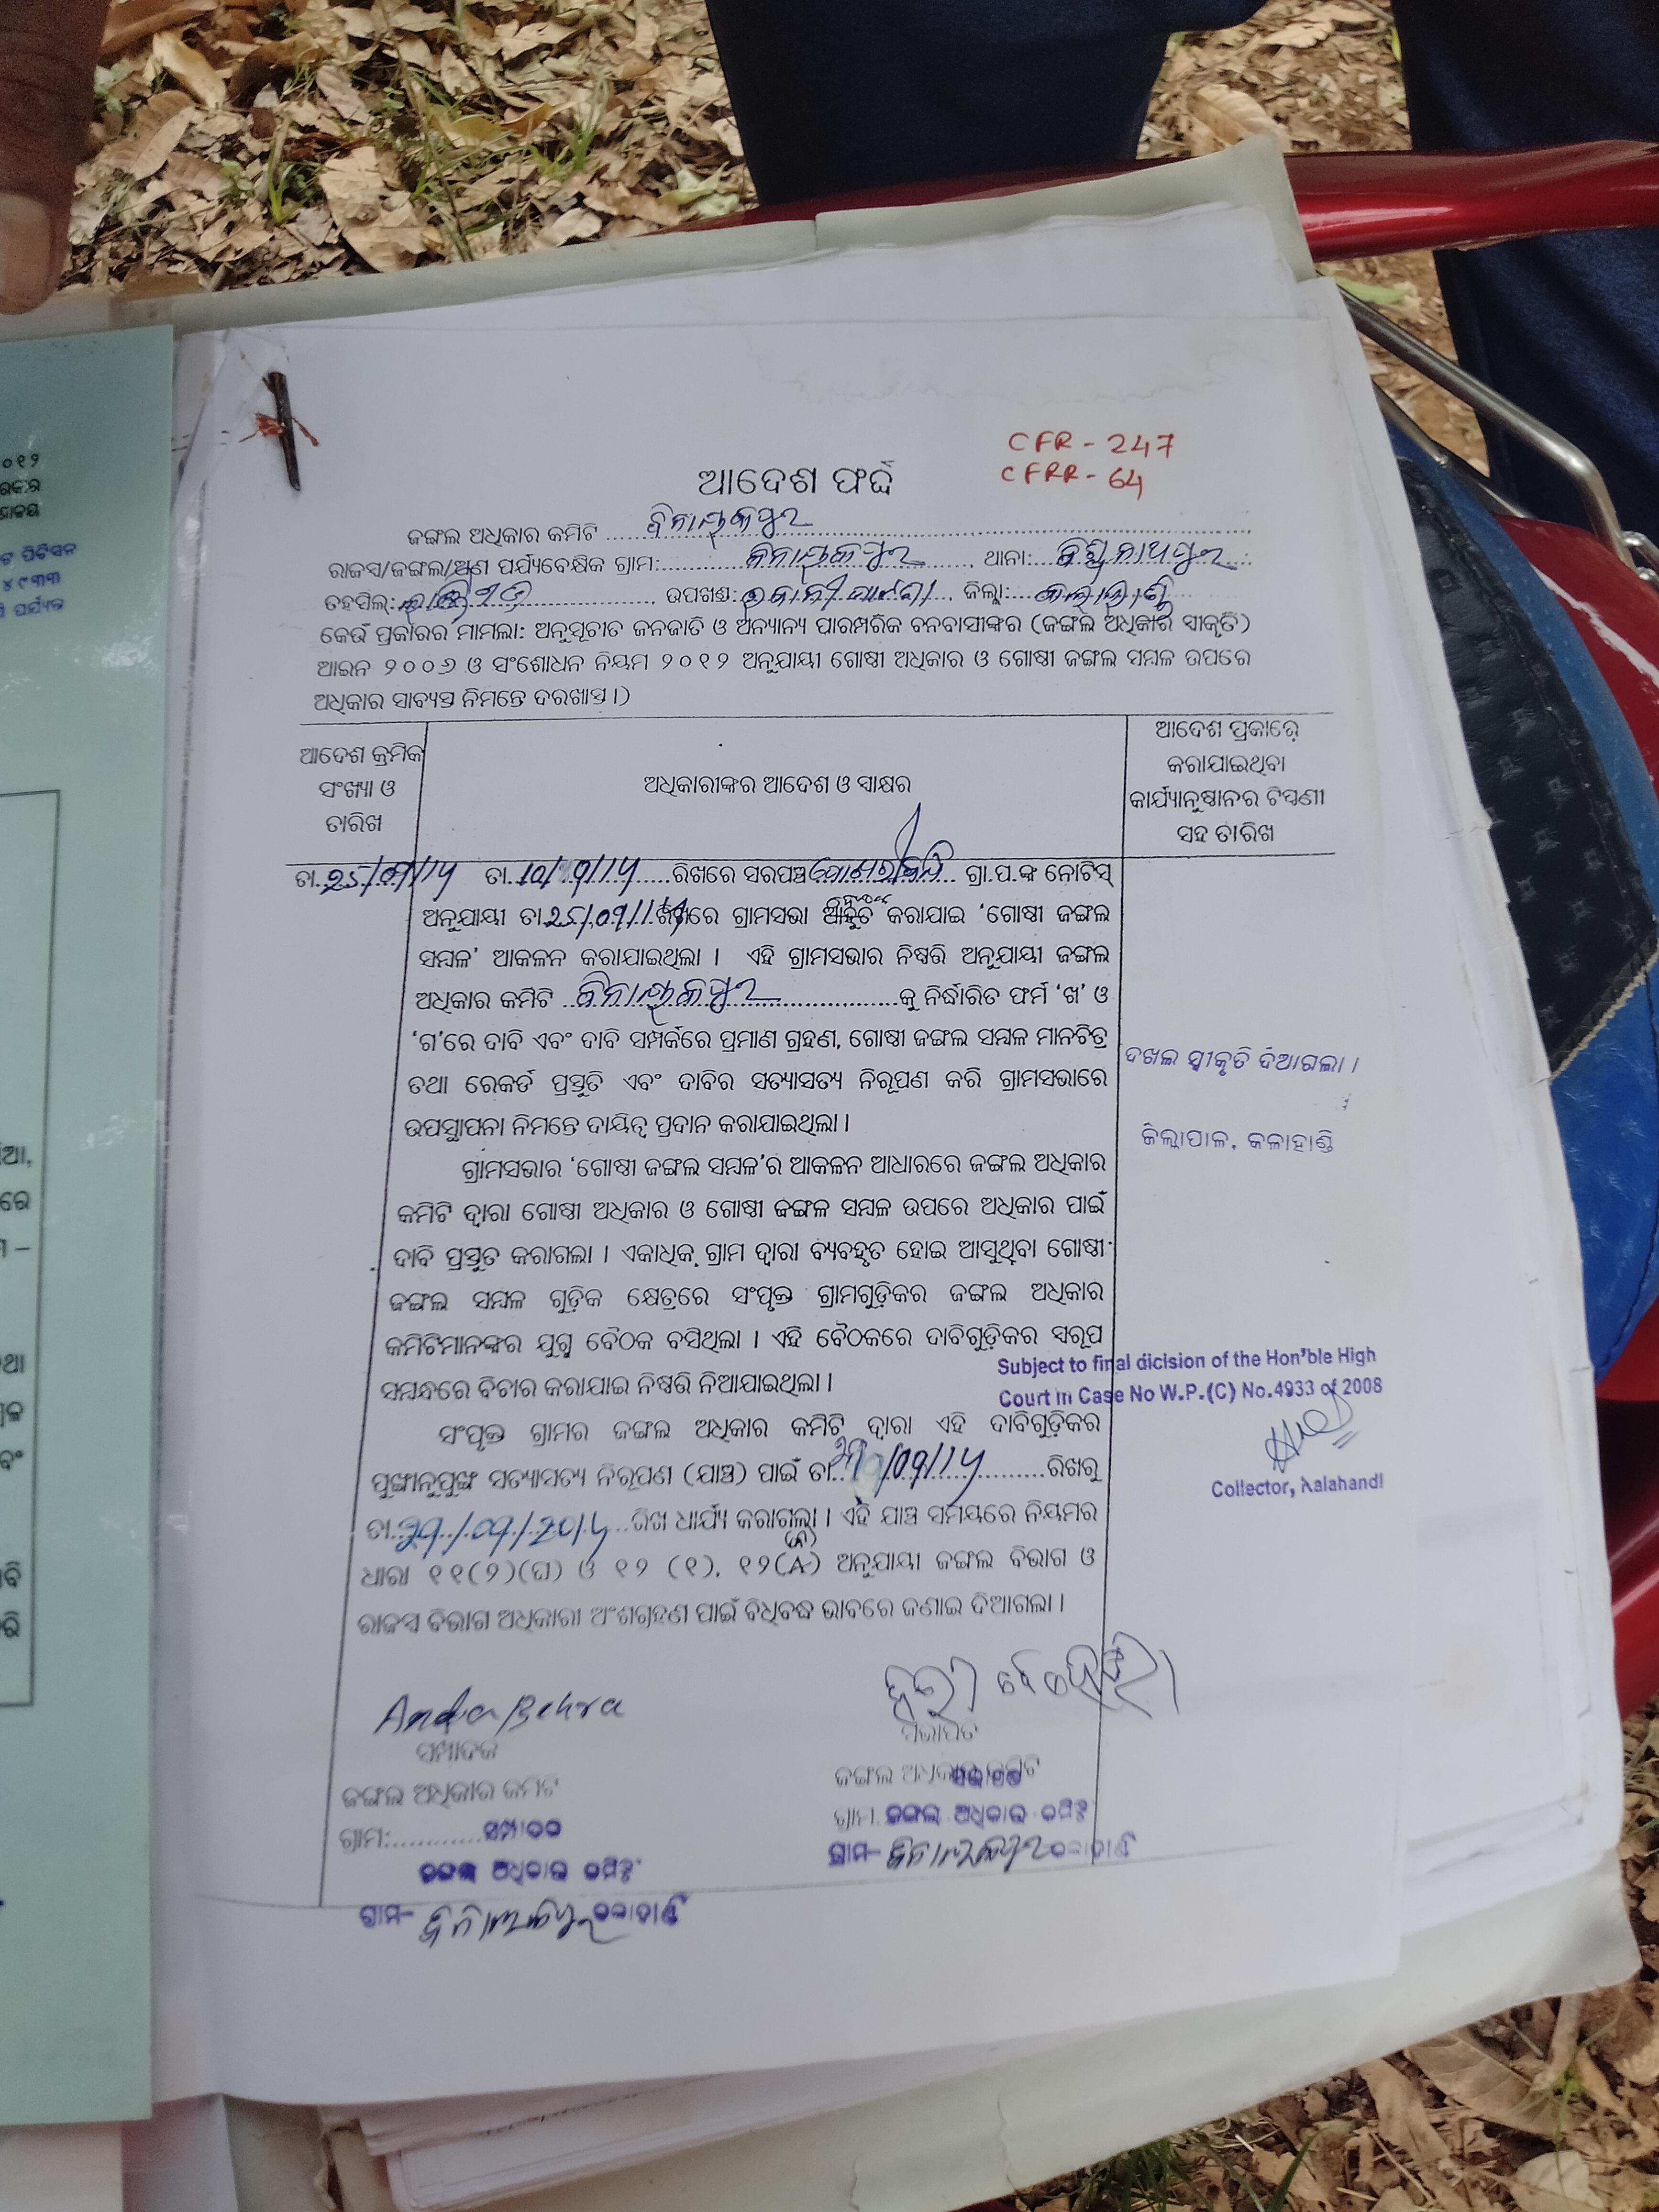 CFR - 247
CFRR - 64
ଆଦେଶ ଫର୍ଦ୍ଦ
ଜଙ୍ଗଲ ଅଧିକାର କମିଟି ବିନାୟକପୁର
ରାଜସ୍ୱ/ଜଙ୍ଗଲ/ଅଣ ପର୍ଯ୍ୟବେକ୍ଷିକ ଗ୍ରାମ: ବିନାୟକପୁର, ଥାନା: ବିଶ୍ୱନାଥପୁର
ତହସିଲ: ଲାଞ୍ଜିଗଡ, ଉପଖଣ୍ଡ: ଭବାନୀପାଟଣା, ଜିଲ୍ଲା: କଳାହାଣ୍ଡି
କେଉଁ ପ୍ରକାରର ମାମଲା: ଅନୁସୂଚୀତ ଜନଜାତି ଓ ଅନ୍ୟାନ୍ୟ ପାରମ୍ପରିକ ବନବାସୀଙ୍କର (ଜଙ୍ଗଲ ଅଧିକାର ସ୍ୱୀକୃତି)
ଆଇନ ୨୦୦୬ ଓ ସଂଶୋଧନ ନିୟମ ୨୦୧୨ ଅନୁଯାୟୀ ଗୋଷ୍ଠୀ ଅଧିକାର ଓ ଗୋଷ୍ଠୀ ଜଙ୍ଗଲ ସମ୍ବଳ ଉପରେ
ଅଧିକାର ସାବ୍ୟସ୍ତ ନିମନ୍ତେ ଦରଖାସ୍ତ।)
ଆଦେଶ କ୍ରମିକ
ସଂଖ୍ୟା ଓ
ତାରିଖ
ଅଧିକାରୀଙ୍କର ଆଦେଶ ଓ ସ୍ୱାକ୍ଷର
ଆଦେଶ ପ୍ରକାରେ
କରାଯାଇଥିବା
କାର୍ଯ୍ୟାନୁଷ୍ଠାନର ଟିପ୍ପଣୀ
ସହ ତାରିଖ
ତା. 25/09/14 ତା. 10/09/14 ରିଖରେ ସରପଞ୍ଚ ଗ୍ରା.ପ.ଙ୍କ ନୋଟିସ୍
ଅନୁଯାୟୀ ତା 25/09/14 ରିଖରେ ଗ୍ରାମସଭା ଆହୁତ କରାଯାଇ ‘ଗୋଷ୍ଠୀ ଜଙ୍ଗଲ
ସମ୍ବଳ’ ଆକଳନ କରାଯାଇଥିଲା। ଏହି ଗ୍ରାମସଭାର ନିଷ୍ପତ୍ତି ଅନୁଯାୟୀ ଜଙ୍ଗଲ
ଅଧିକାର କମିଟି ବିନାୟକପୁର କୁ ନିର୍ଦ୍ଧାରିତ ଫର୍ମ ‘ଖ’ ଓ
‘ଗ’ରେ ଦାବି ଏବଂ ଦାବି ସମ୍ପର୍କରେ ପ୍ରମାଣ ଗ୍ରହଣ, ଗୋଷ୍ଠୀ ଜଙ୍ଗଲ ସମ୍ବଳ ମାନଚିତ୍ର
ତଥା ରେକର୍ଡ ପ୍ରସ୍ତୁତି ଏବଂ ଦାବିର ସତ୍ୟାସତ୍ୟ ନିରୂପଣ କରି ଗ୍ରାମସଭାରେ
ଉପସ୍ଥାପନା ନିମନ୍ତେ ଦାୟିତ୍ୱ ପ୍ରଦାନ କରାଯାଇଥିଲା।
ଦଖଲ ସ୍ୱୀକୃତି ଦିଆଗଲା।
ଜିଲ୍ଲାପାଳ, କଳାହାଣ୍ଡି
ଗ୍ରାମସଭାର ‘ଗୋଷ୍ଠୀ ଜଙ୍ଗଲ ସମ୍ବଳ’ର ଆକଳନ ଆଧାରରେ ଜଙ୍ଗଲ ଅଧିକାର
କମିଟି ଦ୍ୱାରା ଗୋଷ୍ଠୀ ଅଧିକାର ଓ ଗୋଷ୍ଠୀ ଜଙ୍ଗଲ ସମ୍ବଳ ଉପରେ ଅଧିକାର ପାଇଁ
ଦାବି ପ୍ରସ୍ତୁତ କରାଗଲା। ଏକାଧିକ ଗ୍ରାମ ଦ୍ୱାରା ବ୍ୟବହୃତ ହୋଇ ଆସୁଥିବା ଗୋଷ୍ଠୀ
ଜଙ୍ଗଲ ସମ୍ବଳ ଗୁଡ଼ିକ କ୍ଷେତ୍ରରେ ସଂପୃକ୍ତ ଗ୍ରାମଗୁଡ଼ିକର ଜଙ୍ଗଲ ଅଧିକାର
କମିଟିମାନଙ୍କର ଯୁଗ୍ମ ବୈଠକ ବସିଥିଲା। ଏହି ବୈଠକରେ ଦାବିଗୁଡ଼ିକର ସ୍ୱରୂପ
ସମ୍ବନ୍ଧରେ ବିଚାର କରାଯାଇ ନିଷ୍ପତ୍ତି ନିଆଯାଇଥିଲା।
Subject to final dicision of the Hon'ble High
Court in Case No W.P.(C) No.4933 of 2008
Collector, Kalahandi
ସଂପୃକ୍ତ ଗ୍ରାମର ଜଙ୍ଗଲ ଅଧିକାର କମିଟି ଦ୍ୱାରା ଏହି ଦାବିଗୁଡ଼ିକର
ପୁଙ୍ଖାନୁପୁଙ୍ଖ ସତ୍ୟାସତ୍ୟ ନିରୂପଣ (ଯାଞ୍ଚ) ପାଇଁ ତା /09/14 ରିଖରୁ
ତା. 29/09/2014 ରିଖ ଧାର୍ଯ୍ୟ କରାଗଲା। ଏହି ଯାଞ୍ଚ ସମୟରେ ନିୟମର
ଧାରା ୧୧(୨)(ଘ) ଓ ୧୨ (୧), ୧୨(A) ଅନୁଯାୟୀ ଜଙ୍ଗଲ ବିଭାଗ ଓ
ରାଜସ୍ୱ ବିଭାଗ ଅଧିକାରୀ ଅଂଶଗ୍ରହଣ ପାଇଁ ବିଧିବଦ୍ଧ ଭାବରେ ଜଣାଇ ଦିଆଗଲା।
Anda Behra
ସମ୍ପାଦକ
ଜଙ୍ଗଲ ଅଧିକାର କମିଟି
ଗ୍ରାମ: ସମ୍ପାଦକ
ଜଙ୍ଗଲ ଅଧିକାର କମିଟି
ଗ୍ରାମ- ବିନାୟକପୁର କଳାହାଣ୍ଡି
ବେହେରା
ସଭାପତି
ଜଙ୍ଗଲ ଅଧିକାର କମିଟି
ସଭାପତି
ଗ୍ରାମ. ଜଙ୍ଗଲ ଅଧିକାର କମିଟି
ଗ୍ରାମ- ବିନାୟକପୁର କଳାହାଣ୍ଡି